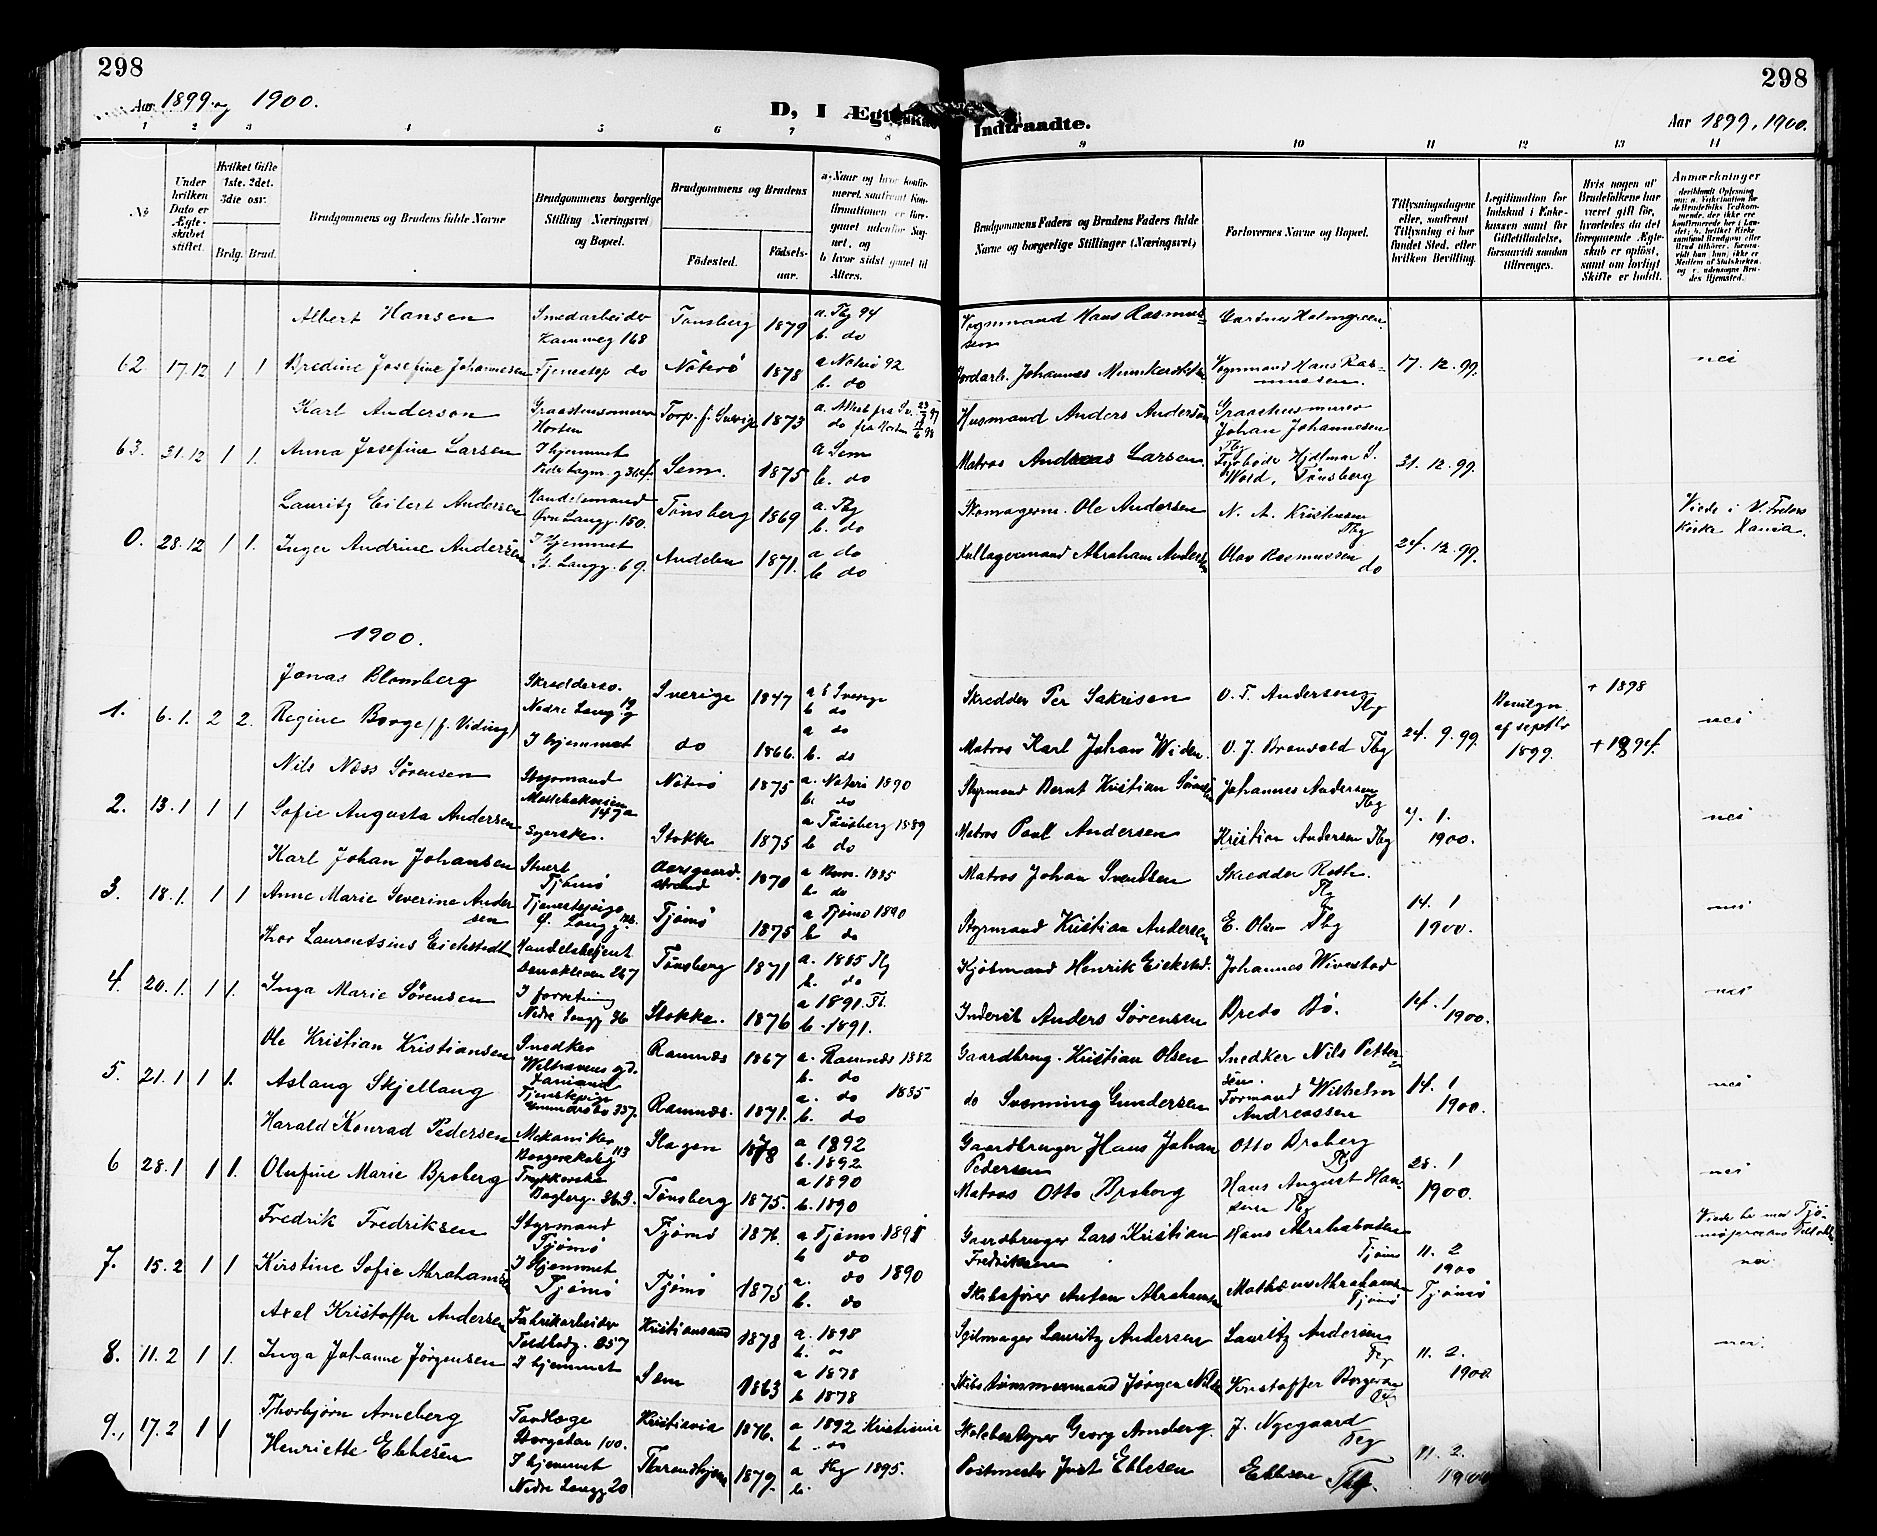 298
298
Aar 1899 og 1900.
D, I Ægte
Indtraadte.
Aar 1899, 1900.
1 2 3 4 5 6 7 8 9 10 11 12 13 14
№
Under hvilken Dato er Ægteskabet stiftet.
Hvilket Gifte 1ste, 2det, 3die osv.
Brdg. Brud.
Brudgommens og Brudens fulde Navne
Brudgommens borgerlige Stilling (Næringsvei) og Bopæl.
Brudgommens og Brudens
Fødested.
Fødselsaar.
a. Naar og hvor konfirmeret, saafremt Konfirmationen er foregaaet udenfor Sognet, og
b. hvor sidst gaaet til Alters.
Brudgommens Faders og Brudens Faders fulde Navne og borgerlige Stillinger (Næringsvei)
Forlovernes Navne og Bopæl.
Tillysningsdagene eller, saafremt Tillysning ei har fundet Sted, efter hvilken Bevilling.
Legitimation for Indskud i Enkekassen samt for Giftetilladelse, forsaavidt saadan tiltrænges.
Hvis nogen af Brudefolkene har været gift før, hvorledes da det foregaaende Ægteskab er opløst, samt om lovligt Skifte er holdt.
Anmærkninger
Albert Hansen Smedarbeider Tønsberg 1879 a. Tbg 94 Vognmand Hans Rasmussen Gartner Holmgreen
Kamveg 168 b. do
62 17.12 1 1 Bredine Josefine Johannesen Tjenestep do Nøterø 1878 a Nøterø 92 b. do Jordarb. Johannes Vognmand Hans Rasmussen. 17. 12. 99. nei
Karl Anderson Horten Torp. f. Sverige 1873 Husmand Anders Anderson Johan Johannesen
63. 31.12 1 1. Anna Josefine Larsen I hjemmet Sem. 1875 a Sem b. do Matros Andreas Larsen. Fyrbøder Hjalmar S. Wold, Tønsberg 31. 12. 99.
Lauritz Eilert Andersen Handelsmand Tønsberg 1869 a. Tbg b. do Skomagerm. Ole Andersen N. A. Kristensen Tbg Viede i V. Frelsers Kirke Xania.
Øvre Langg. 150.
0. 28.12 1 1. Inger Andrine Andersen I hjemmet Langg. 69. Andebu 1871. a do b do Abraham Andersen Olav Rasmussen do 24. 12. 99.
1900.
Jonas Blomberg Sverige 1847 a i Sverige b do Skredder Per Sakrisen O. T. Andersen Tbg + 1898
Nedre Langg 19
1. 6.1. 2 2. Regine Borge (f. Viding) I hjemmet do 1866. a do b. do Matros Karl Johan Widen O. J. Brovold Tbg 24. 9. 99. Bevilgn af septbr 1899 + 1894. nei
Nils Næss Sørensen Styrmand Nøterø 1875 a. Nøterø 1890 b. do Styrmand Bernt Kristian Sørensen Johannes Andersen Tbg
147a
2. 13.1 1 1 Sofie Augusta Andersen Syerske. Stokke 1875 a Tønsberg 1889 b do Matros Paul Andersen Kristian Andersen Tbg 7. 1. 1900. nei
Karl Johan Johansen Stuert Tjømø Aasgaardstrand 1870 1885 b. do Matros Johan Svendsen Skredder Roth. Tbg
3. 18.1. 1 1 Anne Marie Severine Andersen Tjenestepige Ø. Langg. Tjømø 1875 a Tjømø 1890 b do Styrmand Kristian Andersen E. Olsen Tbg 14. 1 1900. nei
Thor Laurentsius Eickstedt Handelsbetjent Tønsberg 1871 a. 1885 Tbg b. do Kjøbmand Henrik Eickstedt. Johannes Wivestad
247
4. 20.1. 1 1. Inga Marie Sørensen I forretning Nedre Langg 36 Stokke. 1876 a 1891. b. 1891. Anders Sørensen Bredo Bø. 14. 1 1900. nei
Ole Kristian Kristiansen Snedker Ramnæs 1867 a. Ramnæs 1882 b. do Gaardbrug. Kristian Olsen Snedker Nils Pettersen.
5. 21.1 1 1. Aslaug Skjellaug Tjenestepige 357. Ramnæs. 1871. a. do 1885 b. do do Svenning Gundersen Formand Wilhelm Andreassen 14. 1 1900. nei
Harald Konrad Pedersen Mekaniker Slagen 1878 a 1892 b. 1892 Gaardbruger Hans Johan Pedersen Otto Broberg Tbg
113
6 28.1 1 1. Olufine Marie Broberg 363. Tønsberg 1875. a 1890 b. 1890 Matros Otto Broberg Hans August Hansen Tbg 28. 1 1900. nei
Fredrik Fredriksen Styrmand Tjømø Tjømø 1876. a Tjømø 1891 b do Gaardbruger Lars Kristian Fredriksen Hans Abrahamsen Tjømø
7. 15.2 1 1 Kirstine Sofie Abrahamsen I Hjemmet Tjømø Tjømø 1875 a. do 1890 b. do Skibsfører Anton Abrahamsen Mathæus Abrahamsen Tjømø 11. 2 1900 Tjømø nei
Axel Kristoffer Andersen Fabrikarbeider Toldbodg. 257 Kristiansand 1878 a. 1898 b. do Seilmager Lauritz Andersen Lauritz Andersen Tbg
8. 11.2 1 1. Inga Johanne Jørgensen I hjemmet Sem 1863 a 1878 b 1878 Skibstømmermand Jørgen Nilsen Kristoffer Borgersen 11. 2. 1900. nei.
Thorbjørn Arneberg Tandlæge Storgaden 100. Kristiania 1876. a 1892 Kristiania b. do Skolebestyrer Georg Arneberg. J. Nygaard Tbg
9., 17.2 1 1 Henriette Ebbesen I hjemmet Nedre Langg 20 Tharondhjem 1879. a Tbg 1895. b. Postmester Just Ebbesen Ebbesen Tbg. 11. 2. 1900